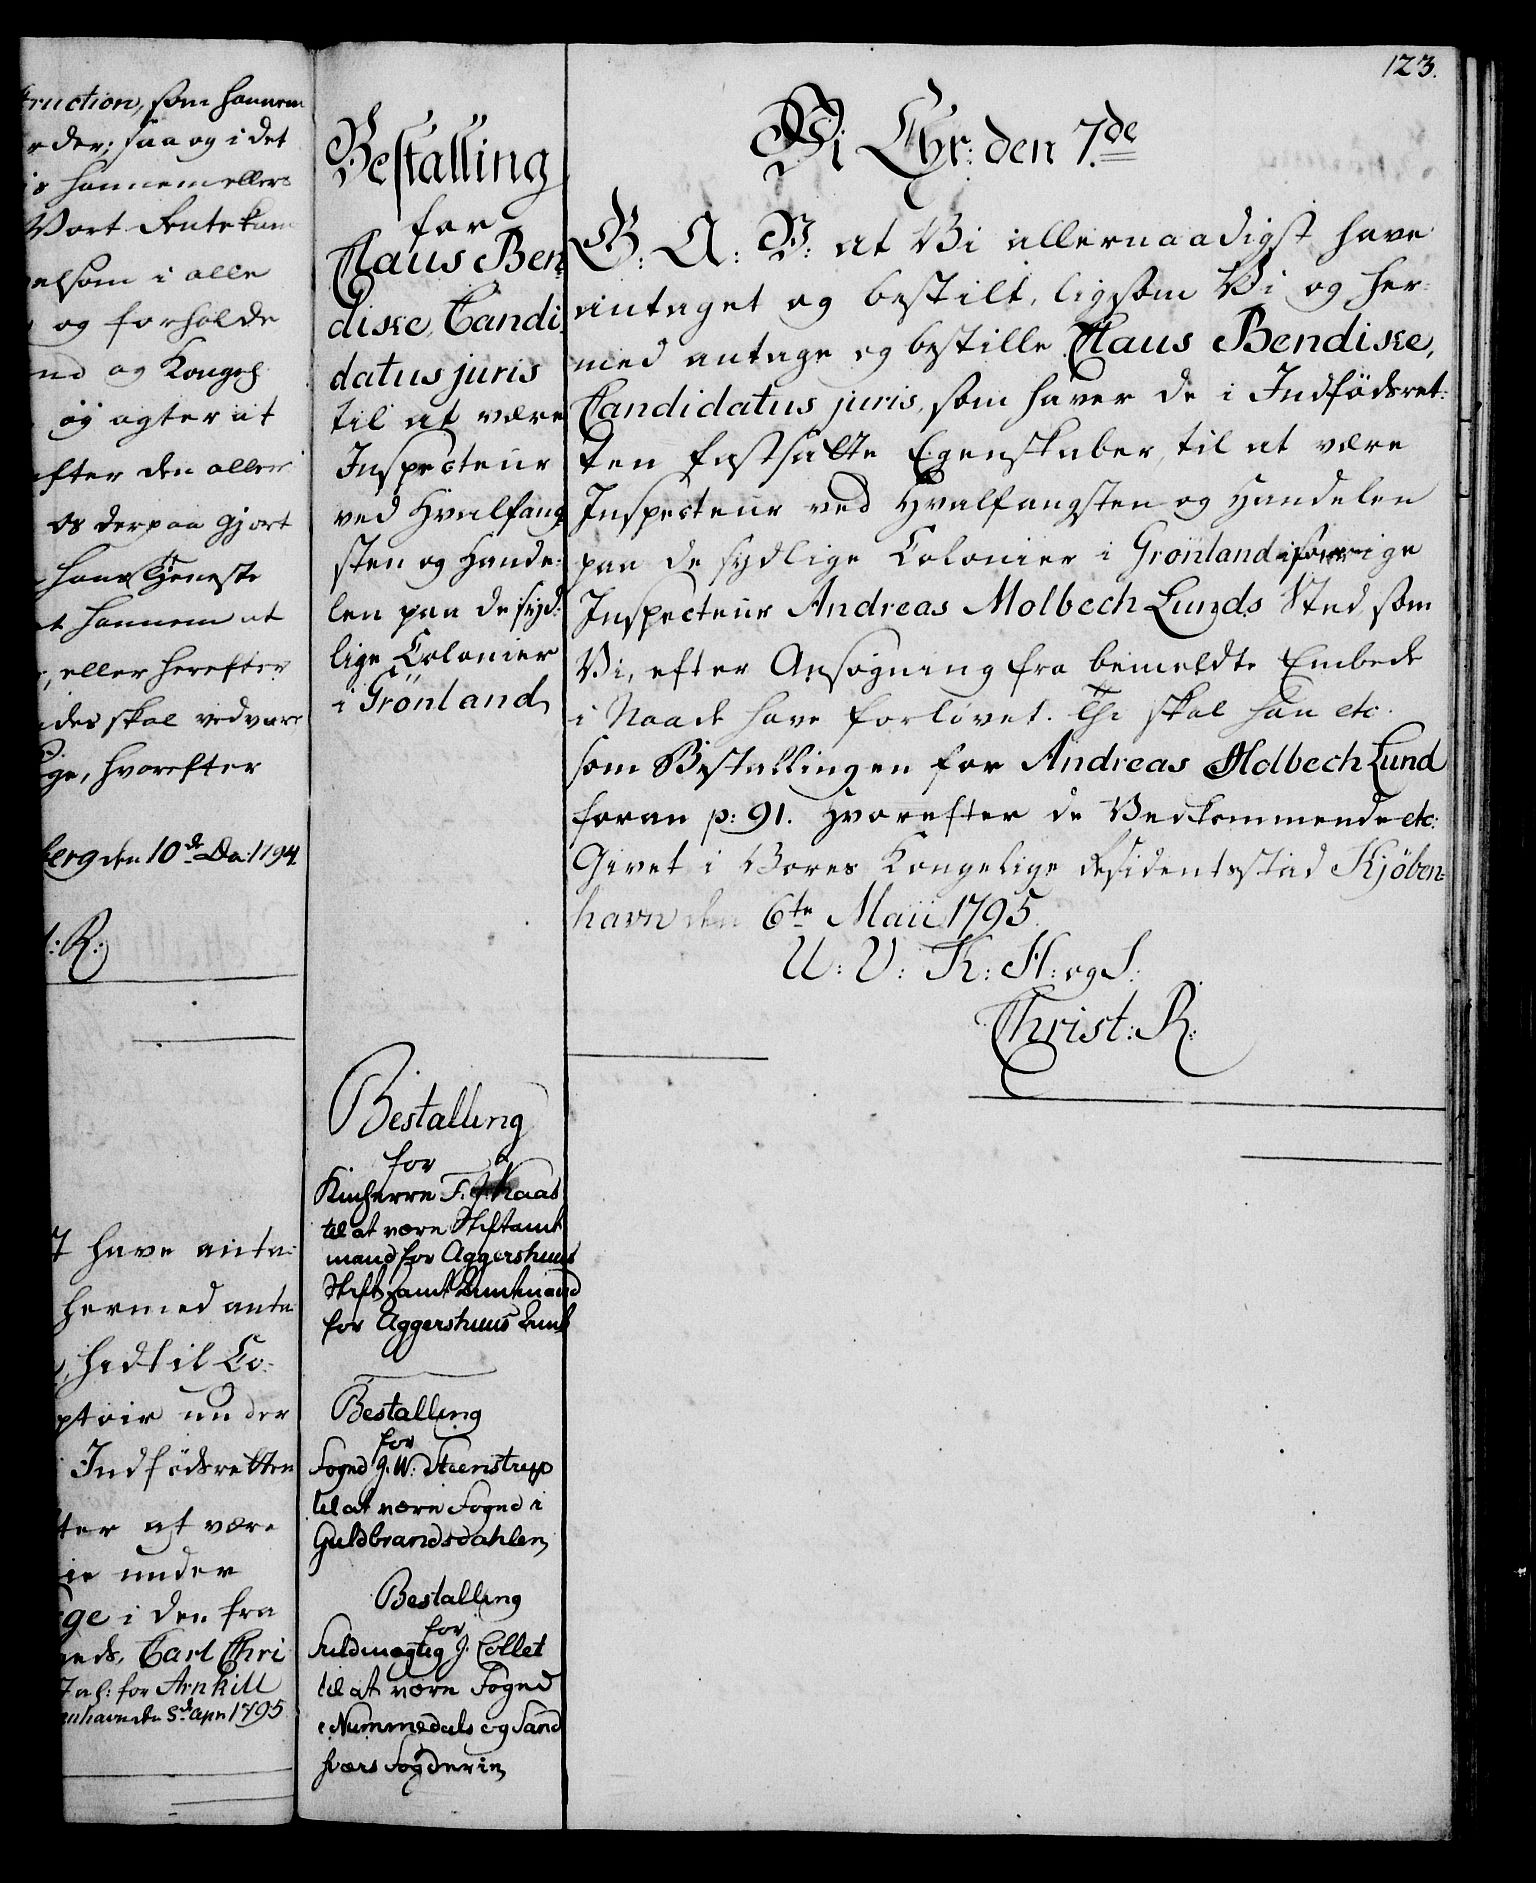 123.
truction, som hannem
rder; saa og i det
is hannem ellers
Vort Rentekam
elsom i alle
og forholde
nd og Kongel.
og agter at
efter den aller
os derpaa gjort
hans Tjeneste
at hannem at
, eller herefter
ides skal vedvare
lige, hvorefter
berg den 10de Dec: 1794
t: R:
T have anta:
hermed anta
hidtil Co:
ptoir under
Indfødsretten
ter at være
ie under
ge i den fra
neds, Carl Chri
for Arnkill
enhavn den 8de Apr: 1795
Bestalling
for
Claus Ben
diske, Candi
datus juris
til at være
Inspecteur
ved Hvalfang
sten og Hande:
len paa de syd:
lige Colonier
i Grönland,
Bestalling
for
Kmherre F. J. Kaas
til at være Stiftamt
mand for Aggershuus
Stift samt Amtmand
for Aggershuus Amt
Bestalling
for
Foged J. W: Steenstrup
til at være Foged i
Guldbrandsdahlen,
Bestalling
for
Fuldmægtig J. Collet
til at være Foged
i Nummedals og Sand
sværs Fogderie,
Vi Chr: den 7de
G: A: V: at Vi allernaadigst have
antaget og bestilt, ligesom Vi og her:
med antage og bestille Claus Bendiske,
Candidatus juris, som haver de i Indfödsret:
ten fastsatte Egenskaber, til at være
Inspecteur ved Hvalfangsten og Handelen
paa de sydlige Colonier i Grönland i forrige
Inspecteur Andreas Molbech Lunds Sted som
Vi, efter Ansøgning fra bemeldte Embede
i Naade have forlövet. Thi skal han etc.
som Bestallingen for Andreas Molbech Lund
foran p: 91. Hvorefter de Vedkommende etc:
Givet i Vores Kongelige Residentsstad Kjöben:
havn den 6te Maii 1795.
U: V: K: H: og S:
Christ: R: